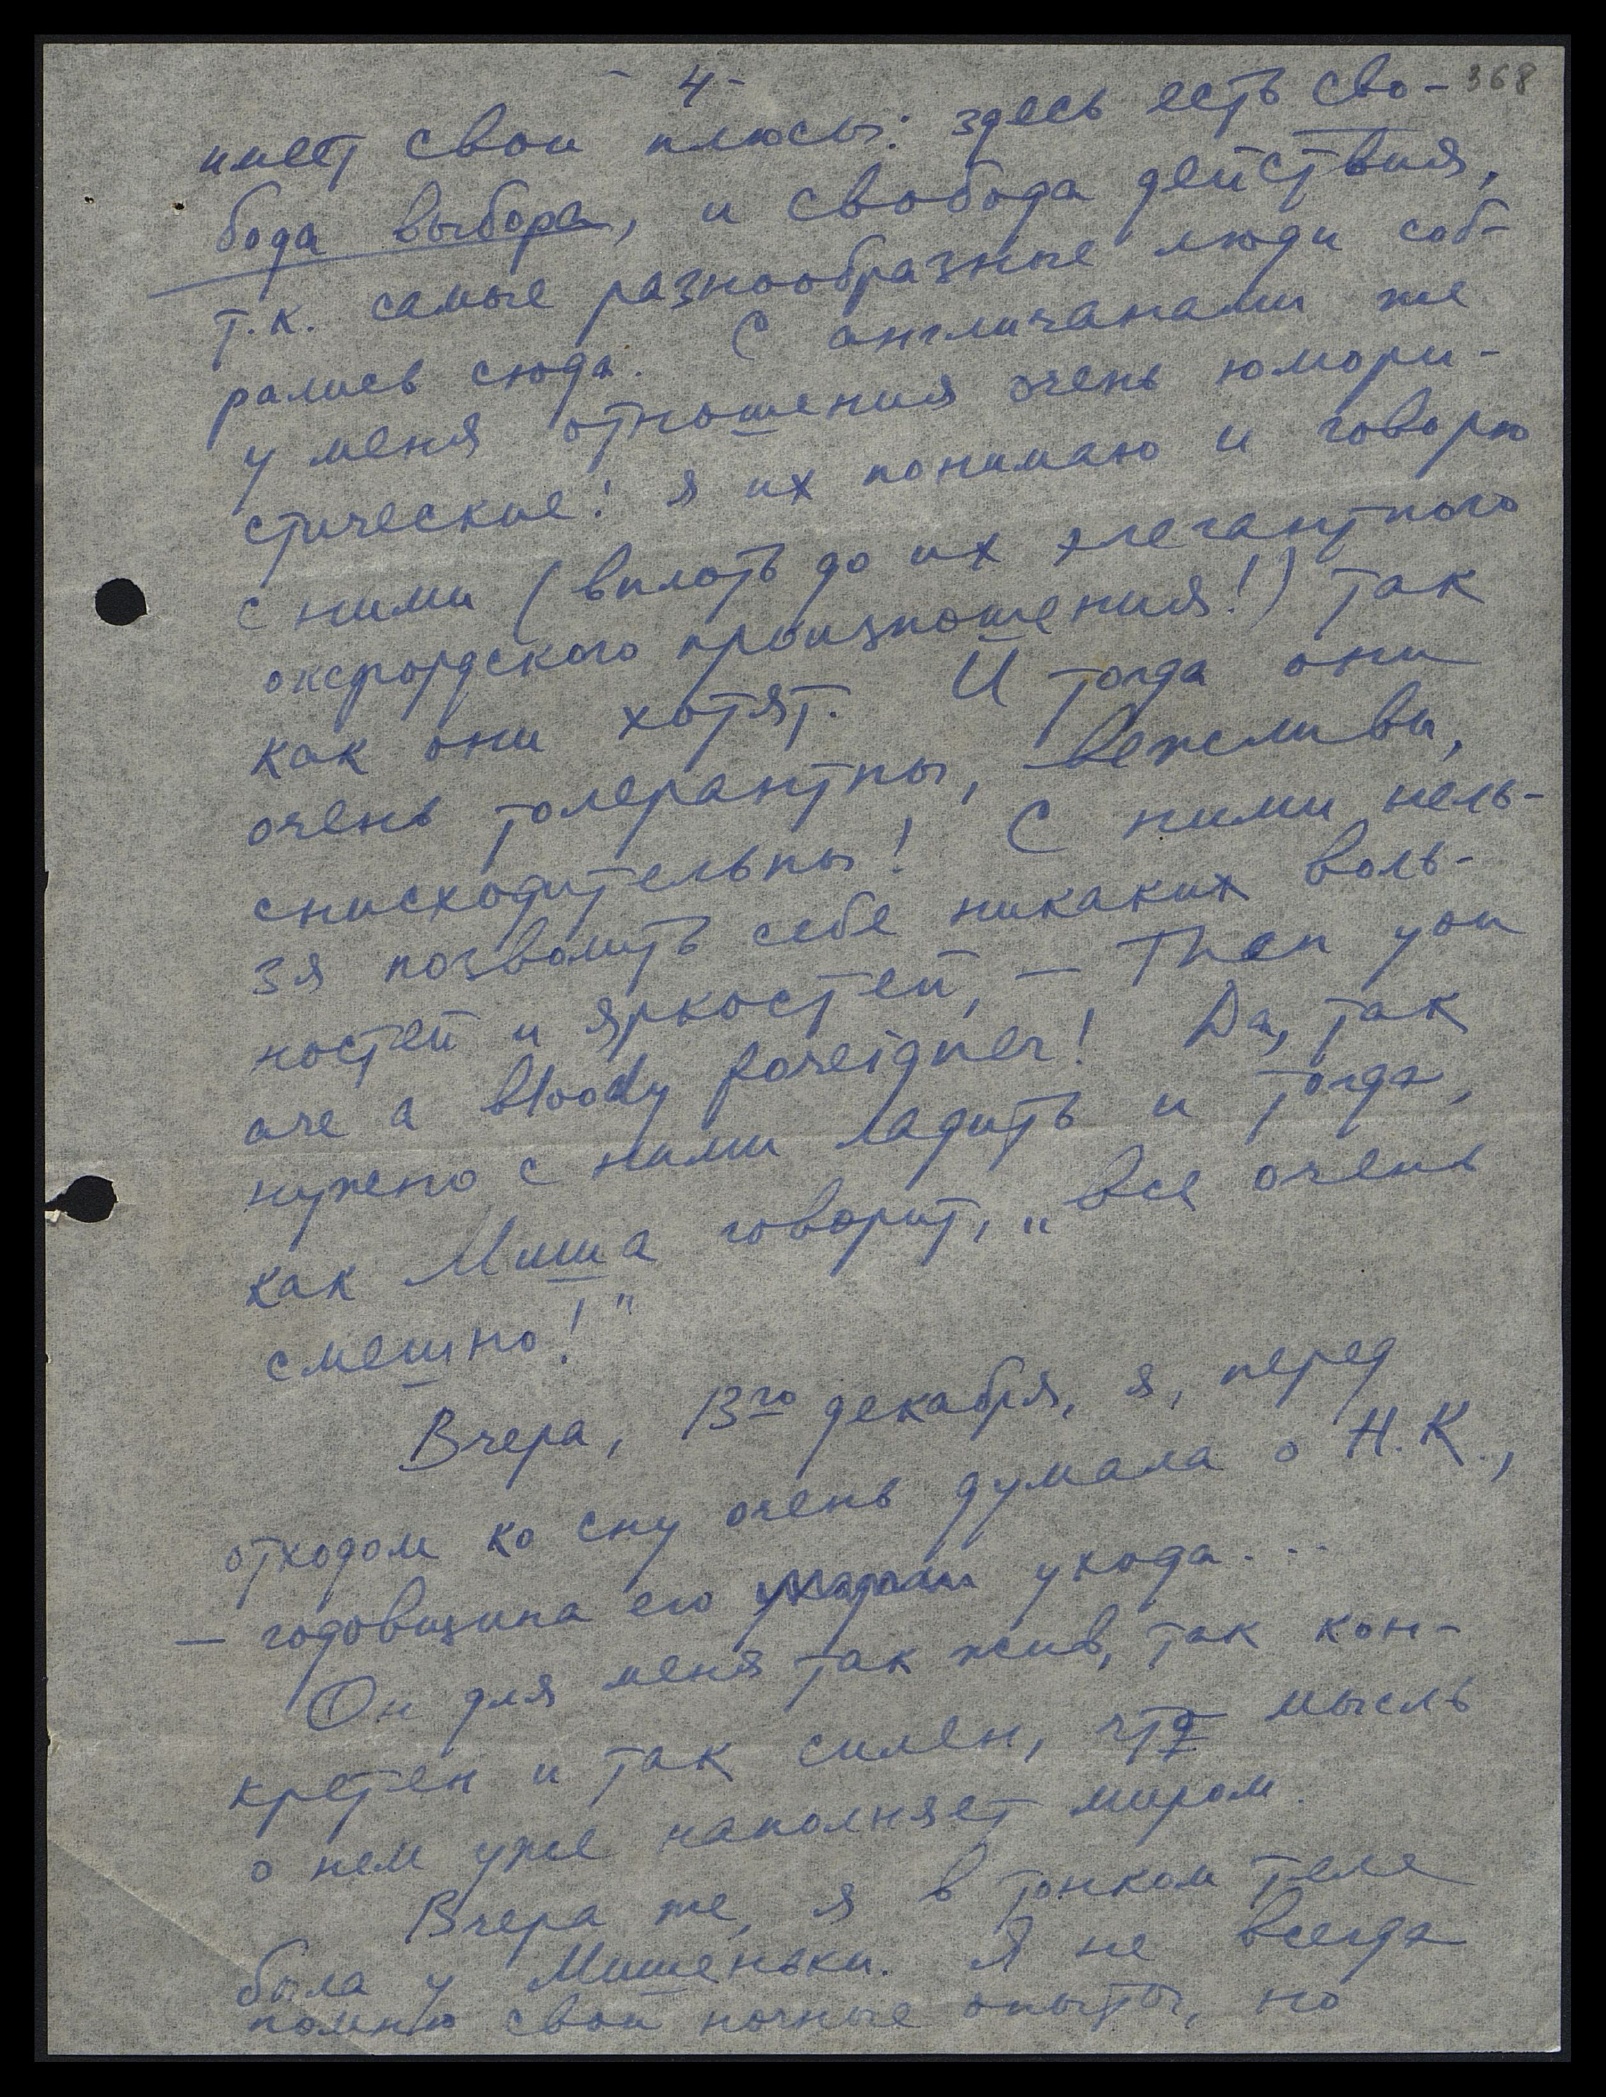 - 4 -
368
имеет свои плюсы: здесь есть сво-
бода выбора, и свобода действия,
т.к. самые разнообразные люди соб-
рались сюда. С англичанами же
у меня отношения очень юмори-
стические! я их понимаю и говорю
с ними (вплоть до их элегантного
оксфордского произношения!) так
как они хотят. И тогда они
очень толерантны, вежливы,
снисходительны! С ними нель-
зя позволить себе никаких воль-
ностей и яркостей, – Then you
are a bloody foreigner! Да, так
нужно с ними ладить и тогда,
как Миша говорит, „все очень
смешно!"
Вчера, 13го декабря, я, перед
отходом ко сну очень думала о Н.К.,
– годовщина его ухода...
Он для меня так жив, так кон-
кретен и так силен, что мысль
о нем уже наполняет миром.
Вчера же, я в тонком теле
была у Мишеньки. Я не всегда
помню свои ночные опыты, но